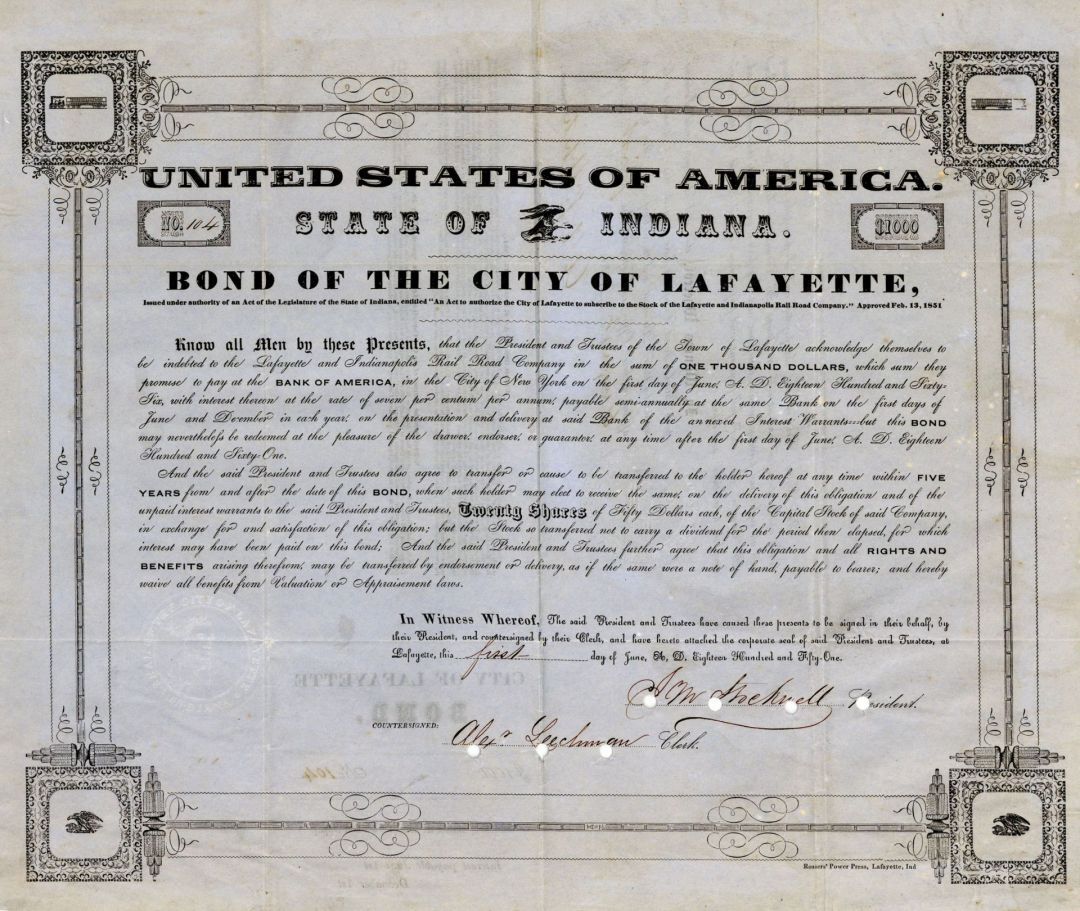 UNITED STATES OF AMERICA.
NO. 104
STATE OF INDIANA.
$1000
BOND OF THE CITY OF LAFAYETTE,
Issued under authority of an Act of the Legislature of the State of Indiana, entitled "An Act to authorize the City of Lafayette to subscribe to the Stock of the Lafayette and Indianapolis Rail Road Company." Approved Feb. 13, 1851
Know all Men by these Presents, that the President and Trustees of the Town of Lafayette acknowledge themselves to
be indebted to the Lafayette and Indianapolis Rail Road Company in the sum of ONE THOUSAND DOLLARS, which sum they
promise to pay at the BANK OF AMERICA, in the City of New York on the first day of June, A. D. Eighteen Hundred and Sixty-
Six, with interest thereon at the rate of seven per centum per annum, payable semi-annually at the same Bank on the first days of
June and December in each year, on the presentation and delivery at said Bank of the annexed Interest Warrants--but this BOND
may nevertheless be redeemed at the pleasure of the drawer, endorser, or guarantor, at any time after the first day of June, A. D. Eighteen
Hundred and Sixty-One.
And the said President and Trustees also agree to transfer or cause to be transferred to the holder hereof at any time within FIVE
YEARS from and after the date of this BOND, when such holder may elect to receive the same, on the delivery of this obligation and of the
unpaid interest warrants to the said President and Trustees, Twenty Shares of Fifty Dollars each, of the Capital Stock of said Company,
in exchange for and satisfaction of this obligation; but the Stock so transferred not to carry a dividend for the period then elapsed, for which
interest may have been paid on this bond; And the said President and Trustees further agree that this obligation and all RIGHTS AND
BENEFITS arising therefrom, may be transferred by endorsement or delivery, as if the same were a note of hand, payable to bearer; and hereby
waive all benefits from Valuation or Appraisement laws.
In Witness Whereof, The said President and Trustees have caused these presents to be signed in their behalf, by
their President, and countersigned by their Clerk, and have hereto attached the corporate seal of said President and Trustees, at
Lafayette, this first day of June, A. D. Eighteen Hundred and Fifty-One.
CITY OF LAFAYETTE
BOND,
Stockwell President.
COUNTERSIGNED:
Alexr Leechman Clerk.
No. 104
Rossers' Power Press, Lafayette, Ind